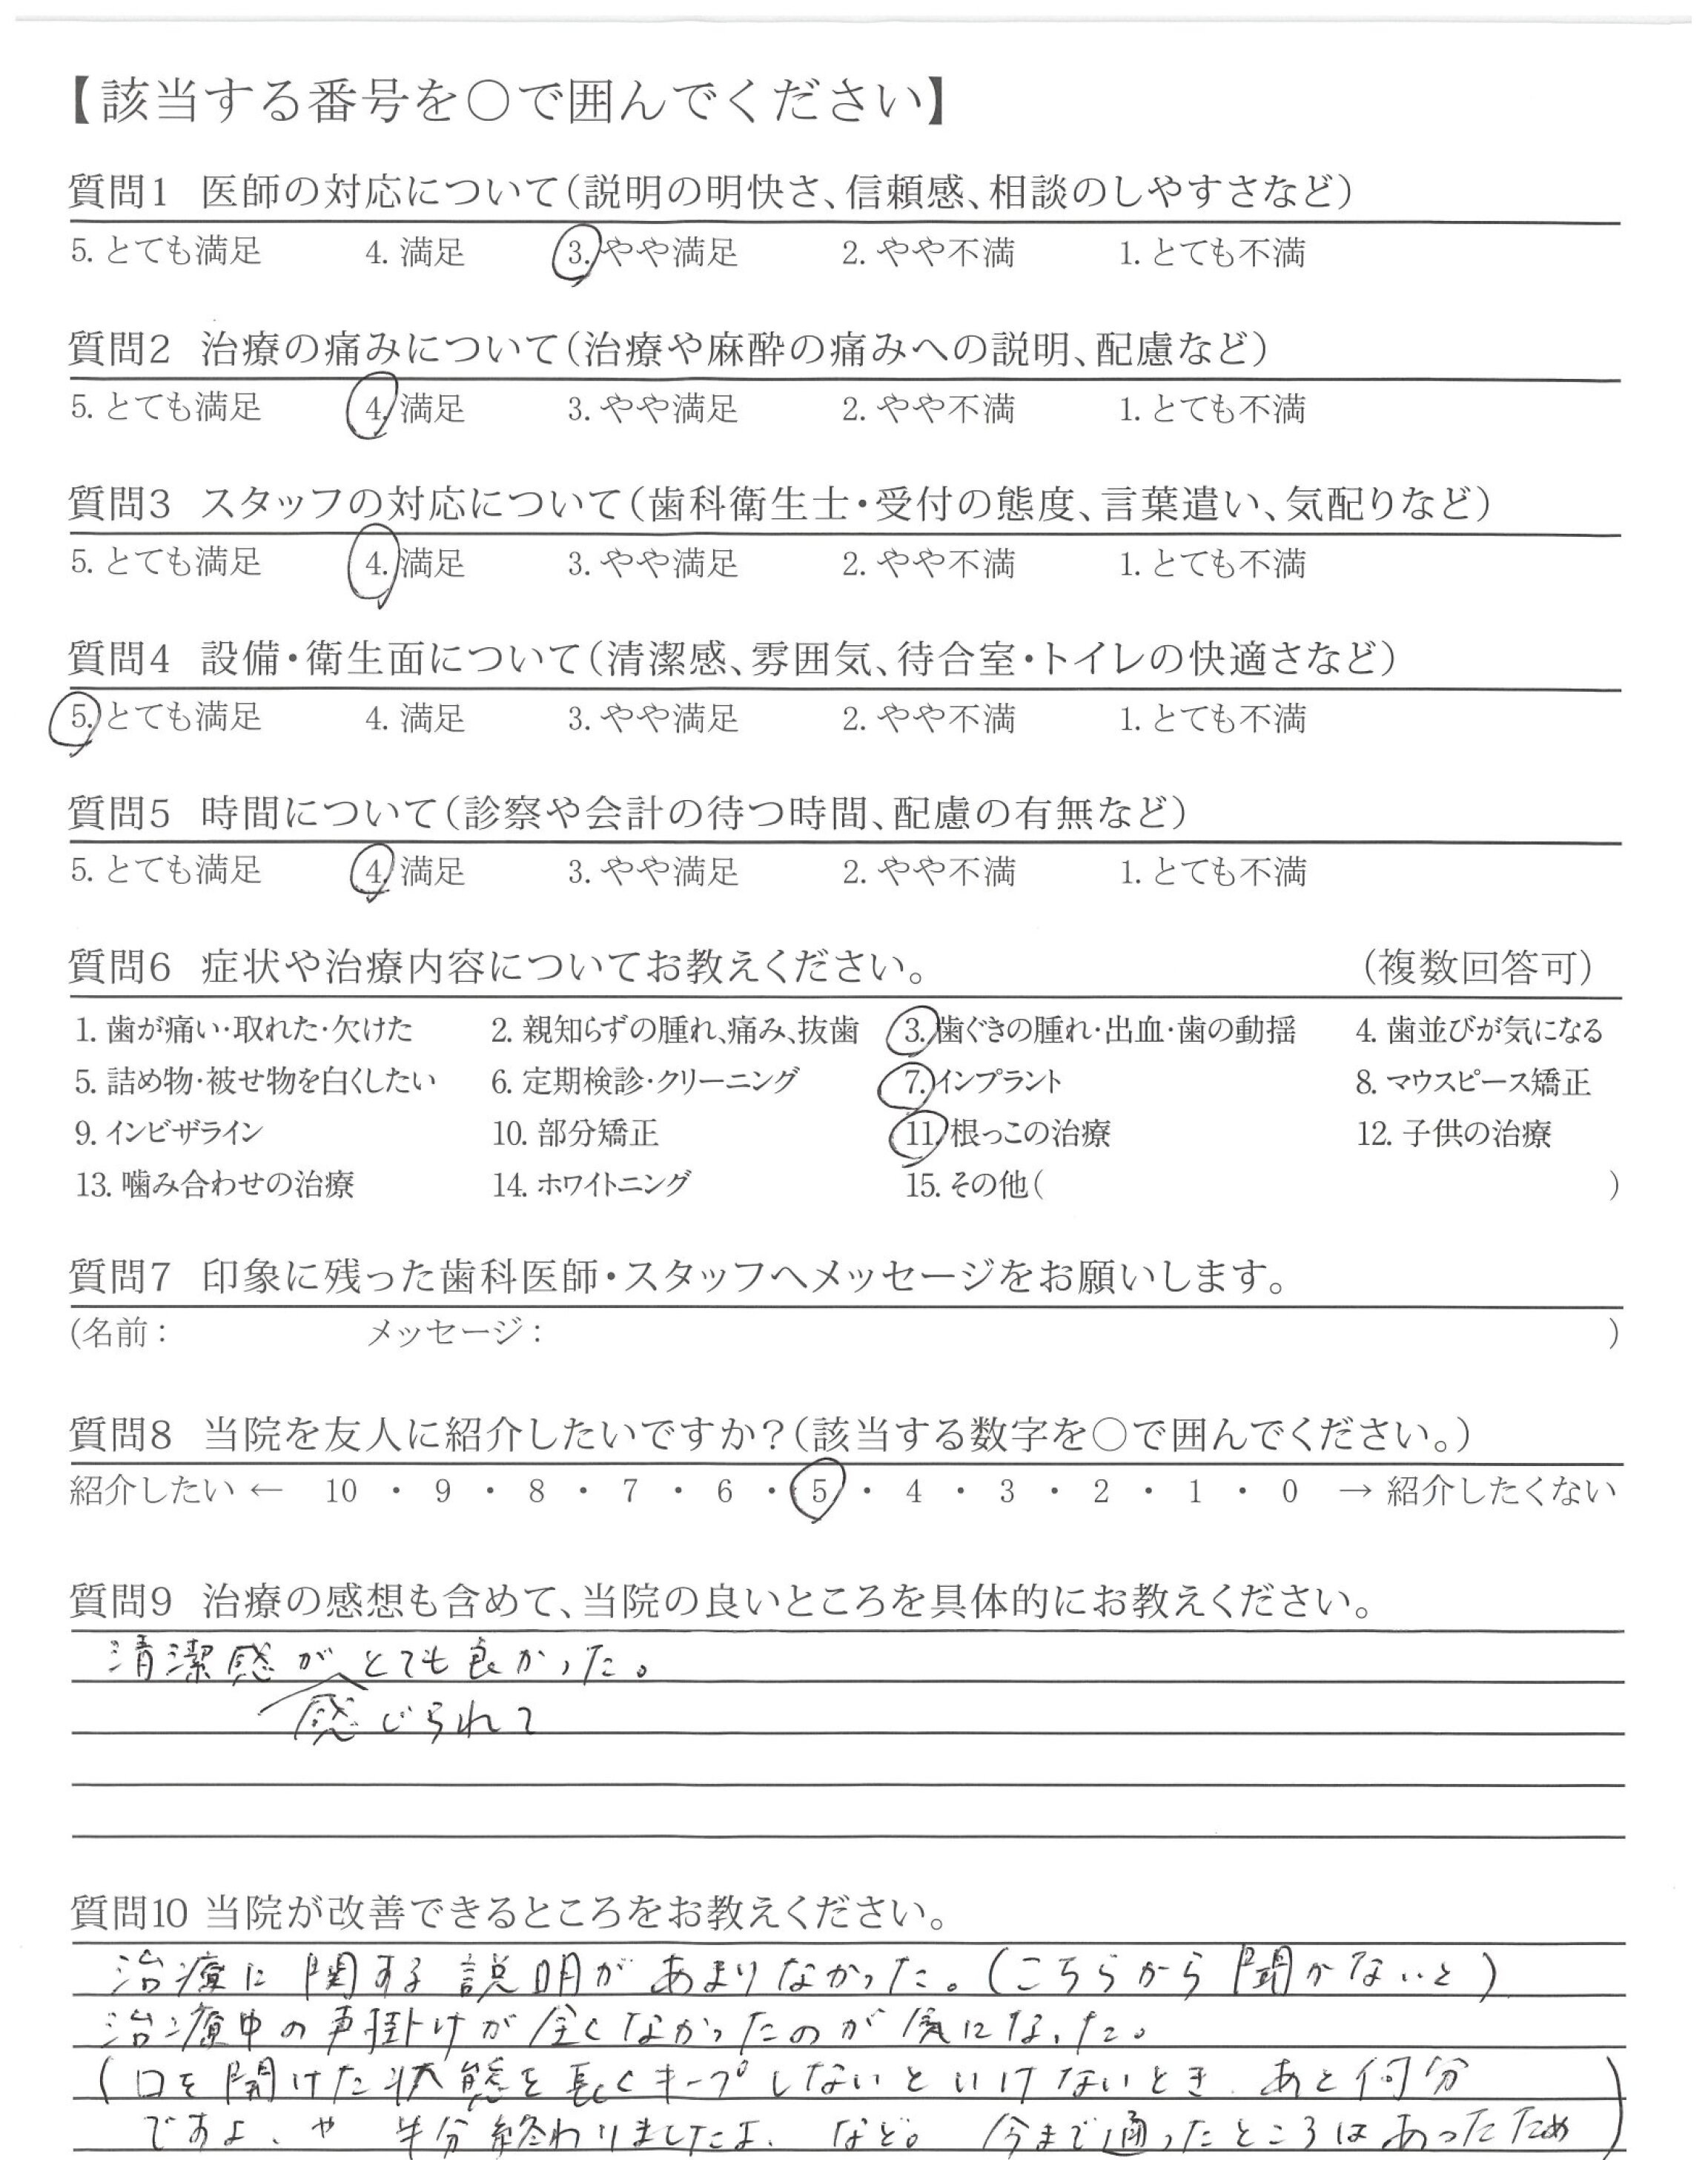 【該当する番号を○で囲んでください】
質問1 医師の対応について(説明の明快さ、信頼感、相談のしやすさなど)
5. とても満足 4. 満足 3. やや満足 2. やや不満 1. とても不満
質問2 治療の痛みについて(治療や麻酔の痛みへの説明、配慮など)
5. とても満足 4. 満足 3. やや満足 2. やや不満 1. とても不満
質問3 スタッフの対応について(歯科衛生士・受付の態度、言葉遣い、気配りなど)
5. とても満足 4. 満足 3. やや満足 2. やや不満 1. とても不満
質問4 設備・衛生面について(清潔感、雰囲気、待合室・トイレの快適さなど)
5. とても満足 4. 満足 3. やや満足 2. やや不満 1. とても不満
質問5 時間について(診察や会計の待つ時間、配慮の有無など)
5. とても満足 4. 満足 3. やや満足 2. やや不満 1. とても不満
質問6 症状や治療内容についてお教えください。 (複数回答可)
1. 歯が痛い・取れた・欠けた 2. 親知らずの腫れ、痛み、抜歯 3. 歯ぐきの腫れ・出血・歯の動揺 4. 歯並びが気になる
5. 詰め物・被せ物を白くしたい 6. 定期検診・クリーニング 7. インプラント 8. マウスピース矯正
9. インビザライン 10. 部分矯正 11. 根っこの治療 12. 子供の治療
13. 噛み合わせの治療 14. ホワイトニング 15. その他( )
質問7 印象に残った歯科医師・スタッフへメッセージをお願いします。
(名前: メッセージ: )
質問8 当院を友人に紹介したいですか?(該当する数字を○で囲んでください。)
紹介したい ← 10 ・ 9 ・ 8 ・ 7 ・ 6 ・ 5 ・ 4 ・ 3 ・ 2 ・ 1 ・ 0 → 紹介したくない
質問9 治療の感想も含めて、当院の良いところを具体的にお教えください。
清潔感がとても良かった。
感じられて
質問10 当院が改善できるところをお教えください。
治療に関する説明があまりなかった。(こちらから聞かないと)
治療中の声掛けが全くなかったのが気になった。
(口を開けた状態を長くキープしないといけないとき、あと何分
ですよ、や 半分終わりましたよ、など。 今まで通ったところはあったため)